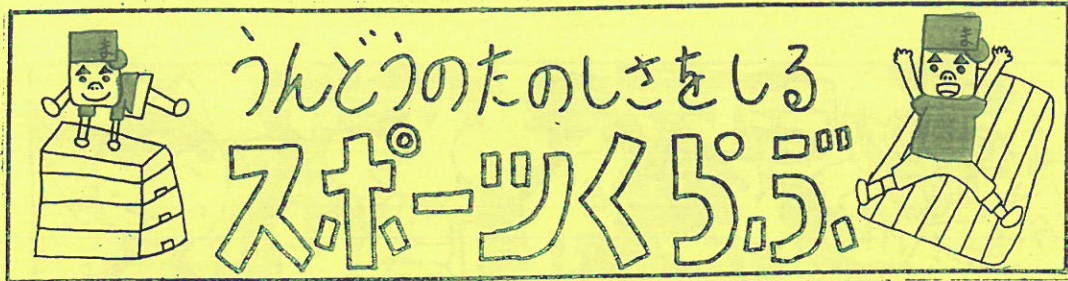 うんどうのたのしさをしる
スポーツくらぶ
ま
ま